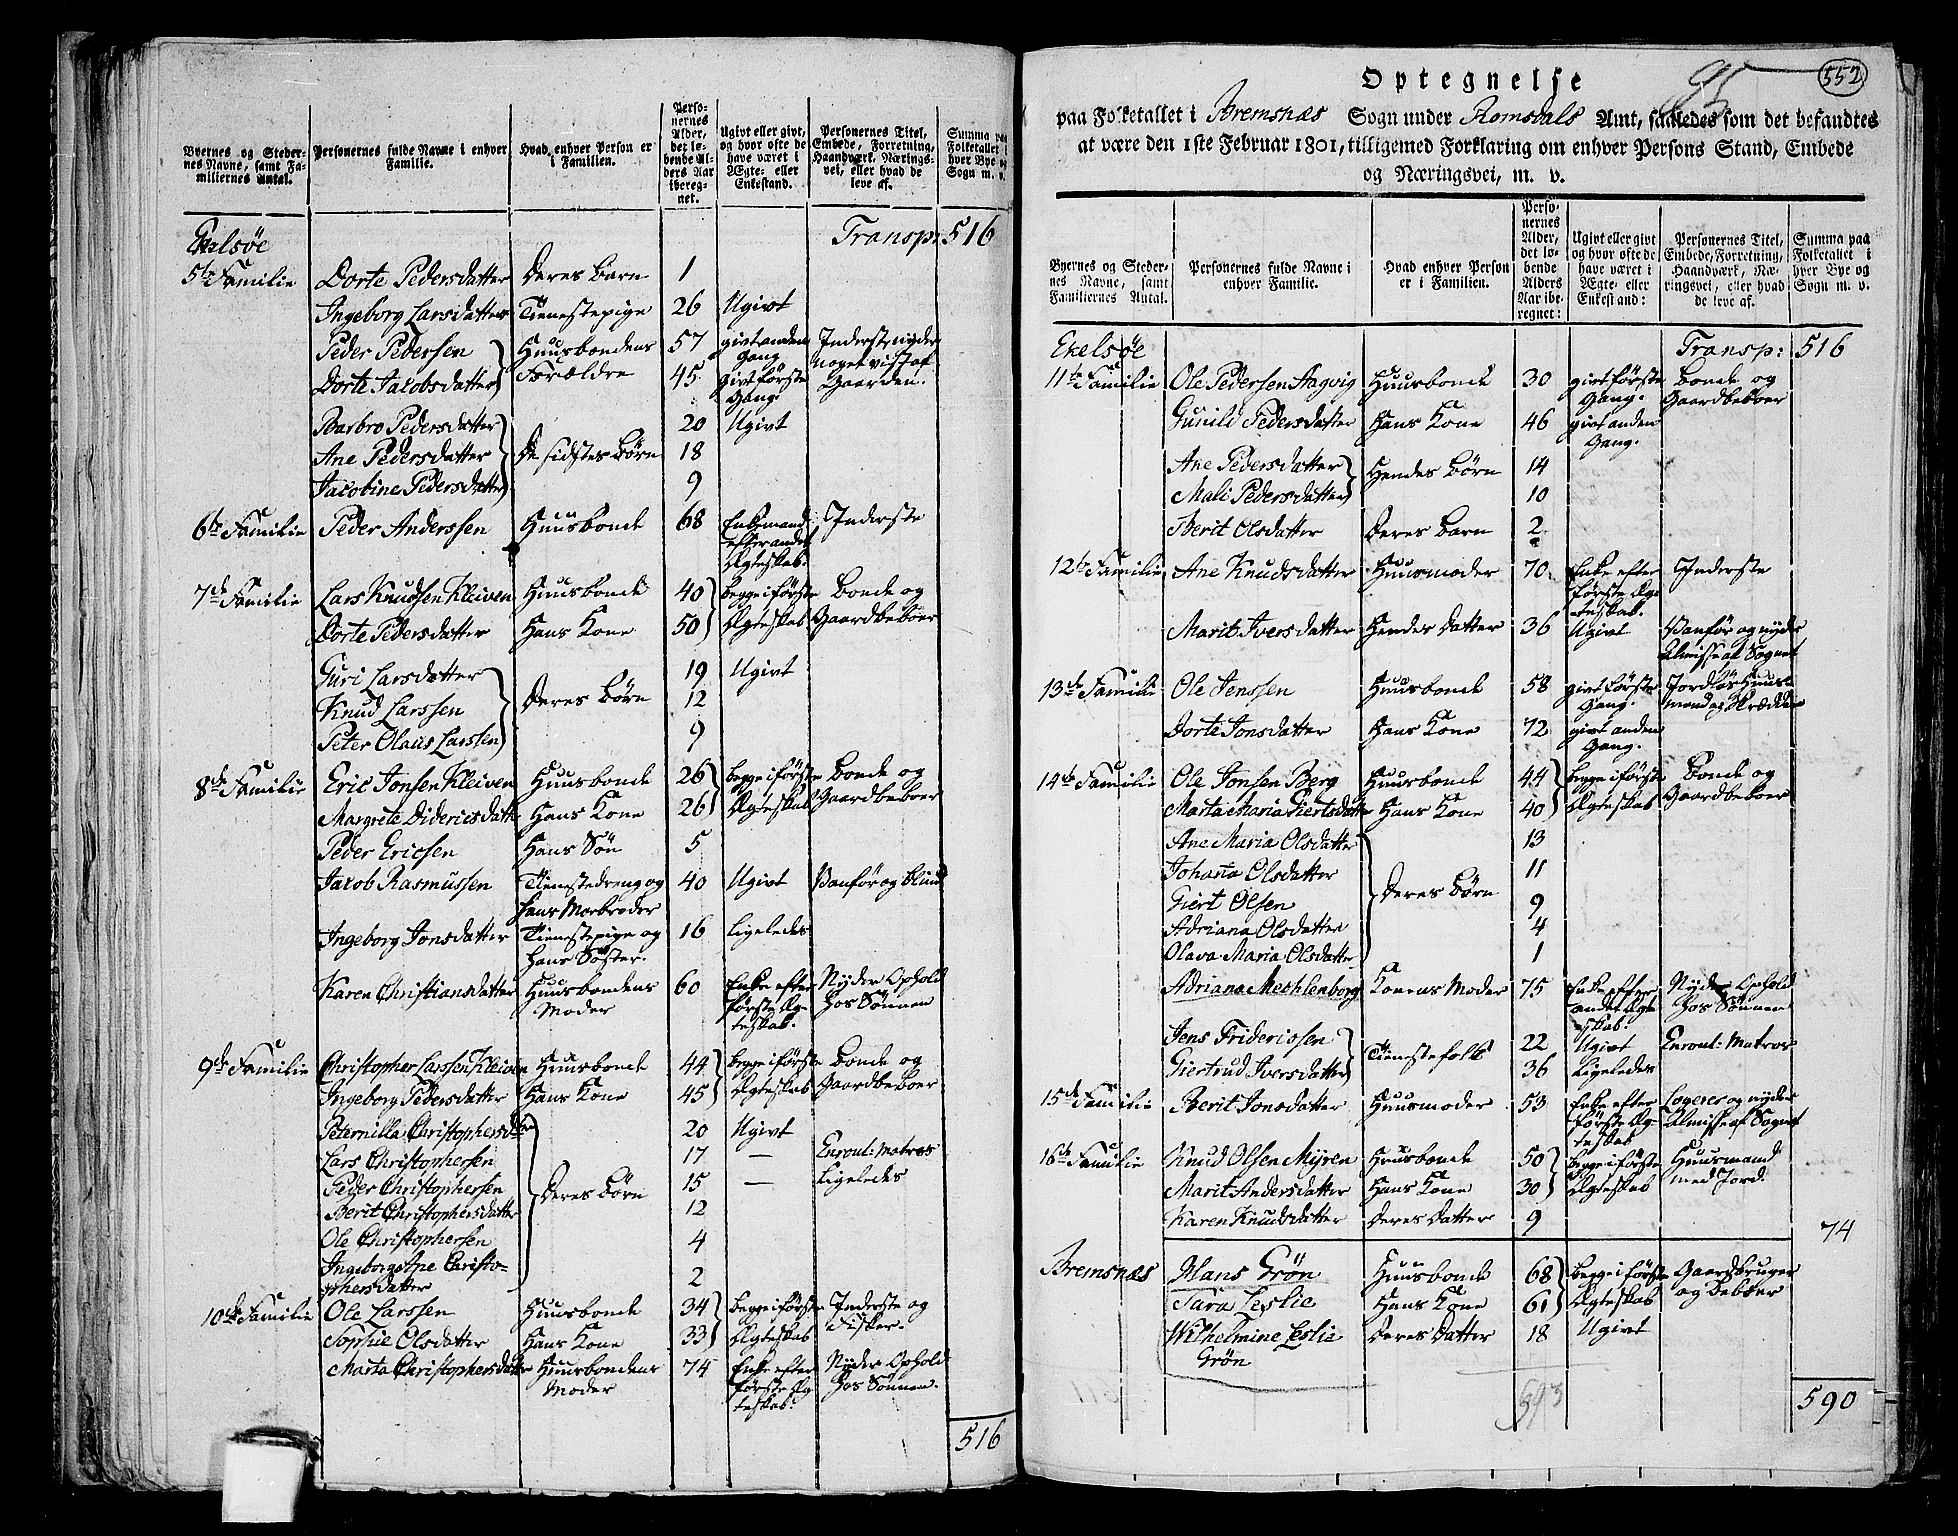 Byernes og Steder-
nes Navne, samt Fa-
miliernes Antal.
Personernes fulde Navne i enhver
Familie.
Hvad, enhver Person er
i Familien.
Perso-
nernes
Alder,
det lø-
bende Al-
ders Aar
iberegn-
net.
Ugivt eller givt,
og hvor ofte de
have været i
Ægte- eller
Enkestand.
Personernes Titel,
Embede, Forretning,
Haandværk, Nærings-
vei, eller hvad de
leve af.
Summa paa
Folketallet i
hver Bye og
Sogn m. v.
Ekelsøe Transp: 516
5te Familie Dorte Pedersdatter Deres Barn 1
Ingeborg Larsdatter Tienestepige 26 Ugivt
Peder Pedersen Huusbondens 57 givt anden Gang Inderste nyder
Dorte Jacobsdatter Forældre 45 givt første Gang noget vist af Gaarden.
Barbro Pedersdatter 20 Ugivt
Ane Pedersdatter De sidstes Børn 18
Jacobine Pedersdatter 9
6te Familie Peder Anderssen Huusbonde 68 Enkemand Inderste
efter andet
Ægteskab.
7de Familie Lars Knudsen Kleiven Huusbonde 40 begge i første Bonde og
Dorte Pedersdatter Hans Kone 50 Ægteskab Gaardbeboer
Guri Larsdatter 19 Ugivt
Knud Larssen Deres Børn 12
Peter Olaus Larssen 9
8de Familie Eric Jonsen Kleiven Huusbonde 26 begge i første Bonde og
Margrete Didericsdatt. Hans Kone 26 Ægteskab Gaardbeboer
Peder Ericsen Hans Søn 5
Jacob Rasmussen Tienestedreng og 40 Ugivt Vanfør og blind
hans Morbroder
Ingeborg Jonsdatter Tienestepige og 16 ligeledes
Hans Søster.
Karen Christiansdatter Huusbondens 60 Enke efter Nyder Ophold
Moder første Æg- hos Sønnen
teskab.
9de Familie Christopher Larssen Kleiven Huusbonde 44 begge i første Bonde og
Ingeborg Pedersdatter Hans Kone 45 Ægteskab Gaardbeboer
Peternilla Christophersdtter 20 Ugivt
Lars Christophersen 17 — Enroul: Matros
Peder Christophersen Deres Børn 15 — ligeledes
Berit Christophersdatter 12
Ole Christophersen 4
Ingeborg Ane Christo- 2
phersdatter
10de Familie Ole Larssen Huusbonde 34 begge i første Inderste og
Sophie Olsdatter Hans Kone 33 Ægteskab Fisker.
Marta Christophersdatter Huusbondens 74 Enke efter Nyder Ophold
Moder første Æg- hos Sønnen.
teskab.
516
552
95
Optegnelse
paa Folketallet i Bremsnæs Sogn under Romsdals Amt, saaledes som det befandtes
at være den 1ste Februar 1801, tilligemed Forklaring om enhver Persons Stand, Embede
og Næringsvei, m. v.
Byernes og Steder-
nes Navne, samt
Familiernes Antal.
Personernes fulde Navne i
enhver Familie.
Hvad enhver Person
er i Familien.
Perso-
nernes
Alder,
det lø-
bende
Alders
Aar ibe-
regnet:
Ugivt eller givt
og hvor ofte de
have været i
Ægte- eller
Enkestand:
Personernes Titel,
Embede, Forretning,
Haandværk, Næ-
ringsvei, eller hvad
de leve af.
Summa paa
Folketallet i
hver Bye og
Sogn m. v.
Ekelsøe Transp: 516
11te Familie Ole Pedersen Aagvig Huusbonde 30 givt første Gang. Bonde og Gaardbeboer
Gunild Pedersdatter Hans Kone 46 givt anden Gang.
Ane Pedersdatter Hendes Børn 14
Mali Pedersdatter 10
Berit Olsdatter Deres Barn 2
12te Familie Ane Knudsdatter Huusmoder 70 Enke efter Inderste
første Æg-
teskab.
Marit Iversdatter Hendes Datter 36 Ugivt Vanfør og nyder
Almisse af Sognet
13de Familie Ole Jenssen Huusbonde 58 givt første Gang. Jordløs Huus-
mand og Skrædder
Dorte Jonsdatter Hans Kone 72 givt anden Gang.
14de Familie Ole Jonsen Berg Huusbonde 44 begge i første Bonde og
Marta Maria Giertsdatter Hans Kone 40 Ægteskab Gaardbeboer
Ane Maria Olsdatter 13
Johanna Olsdatter 11
Giert Olsen Deres Børn 9
Adriana Olsdatter 4
Olava Maria Olsdatter 1
Adriana Mechlenborg Konens Moder 75 Enke efter Nyder Ophold
andet Ægte hos Sønnen
skab.
Jens Fridericssen 22 Ugivt Enroul: Matros
Giertrud Iversdatter Tienestefolk 36 ligeledes
15de Familie Berit Jonsdatter Huusmoder 53 Enke efter logerer og nyder
første Æg- Almisse af Sognet
teskab
16de Familie Knud Olsen Myren Huusbonde 50 begge i første Huusmand
Marit Andersdatter Hans Kone 30 Ægteskab med Jord.
Karen Knudsdatter Deres Datter 9
74
Bremsnæs Hans Grøn Huusbonde 68 begge i første Gaardbruger
Sara Leslie Hans Kone 61 Ægteskab og Beboer
Wilhelmine Leslie Deres Datter 18 Ugivt
Grøn
593
590